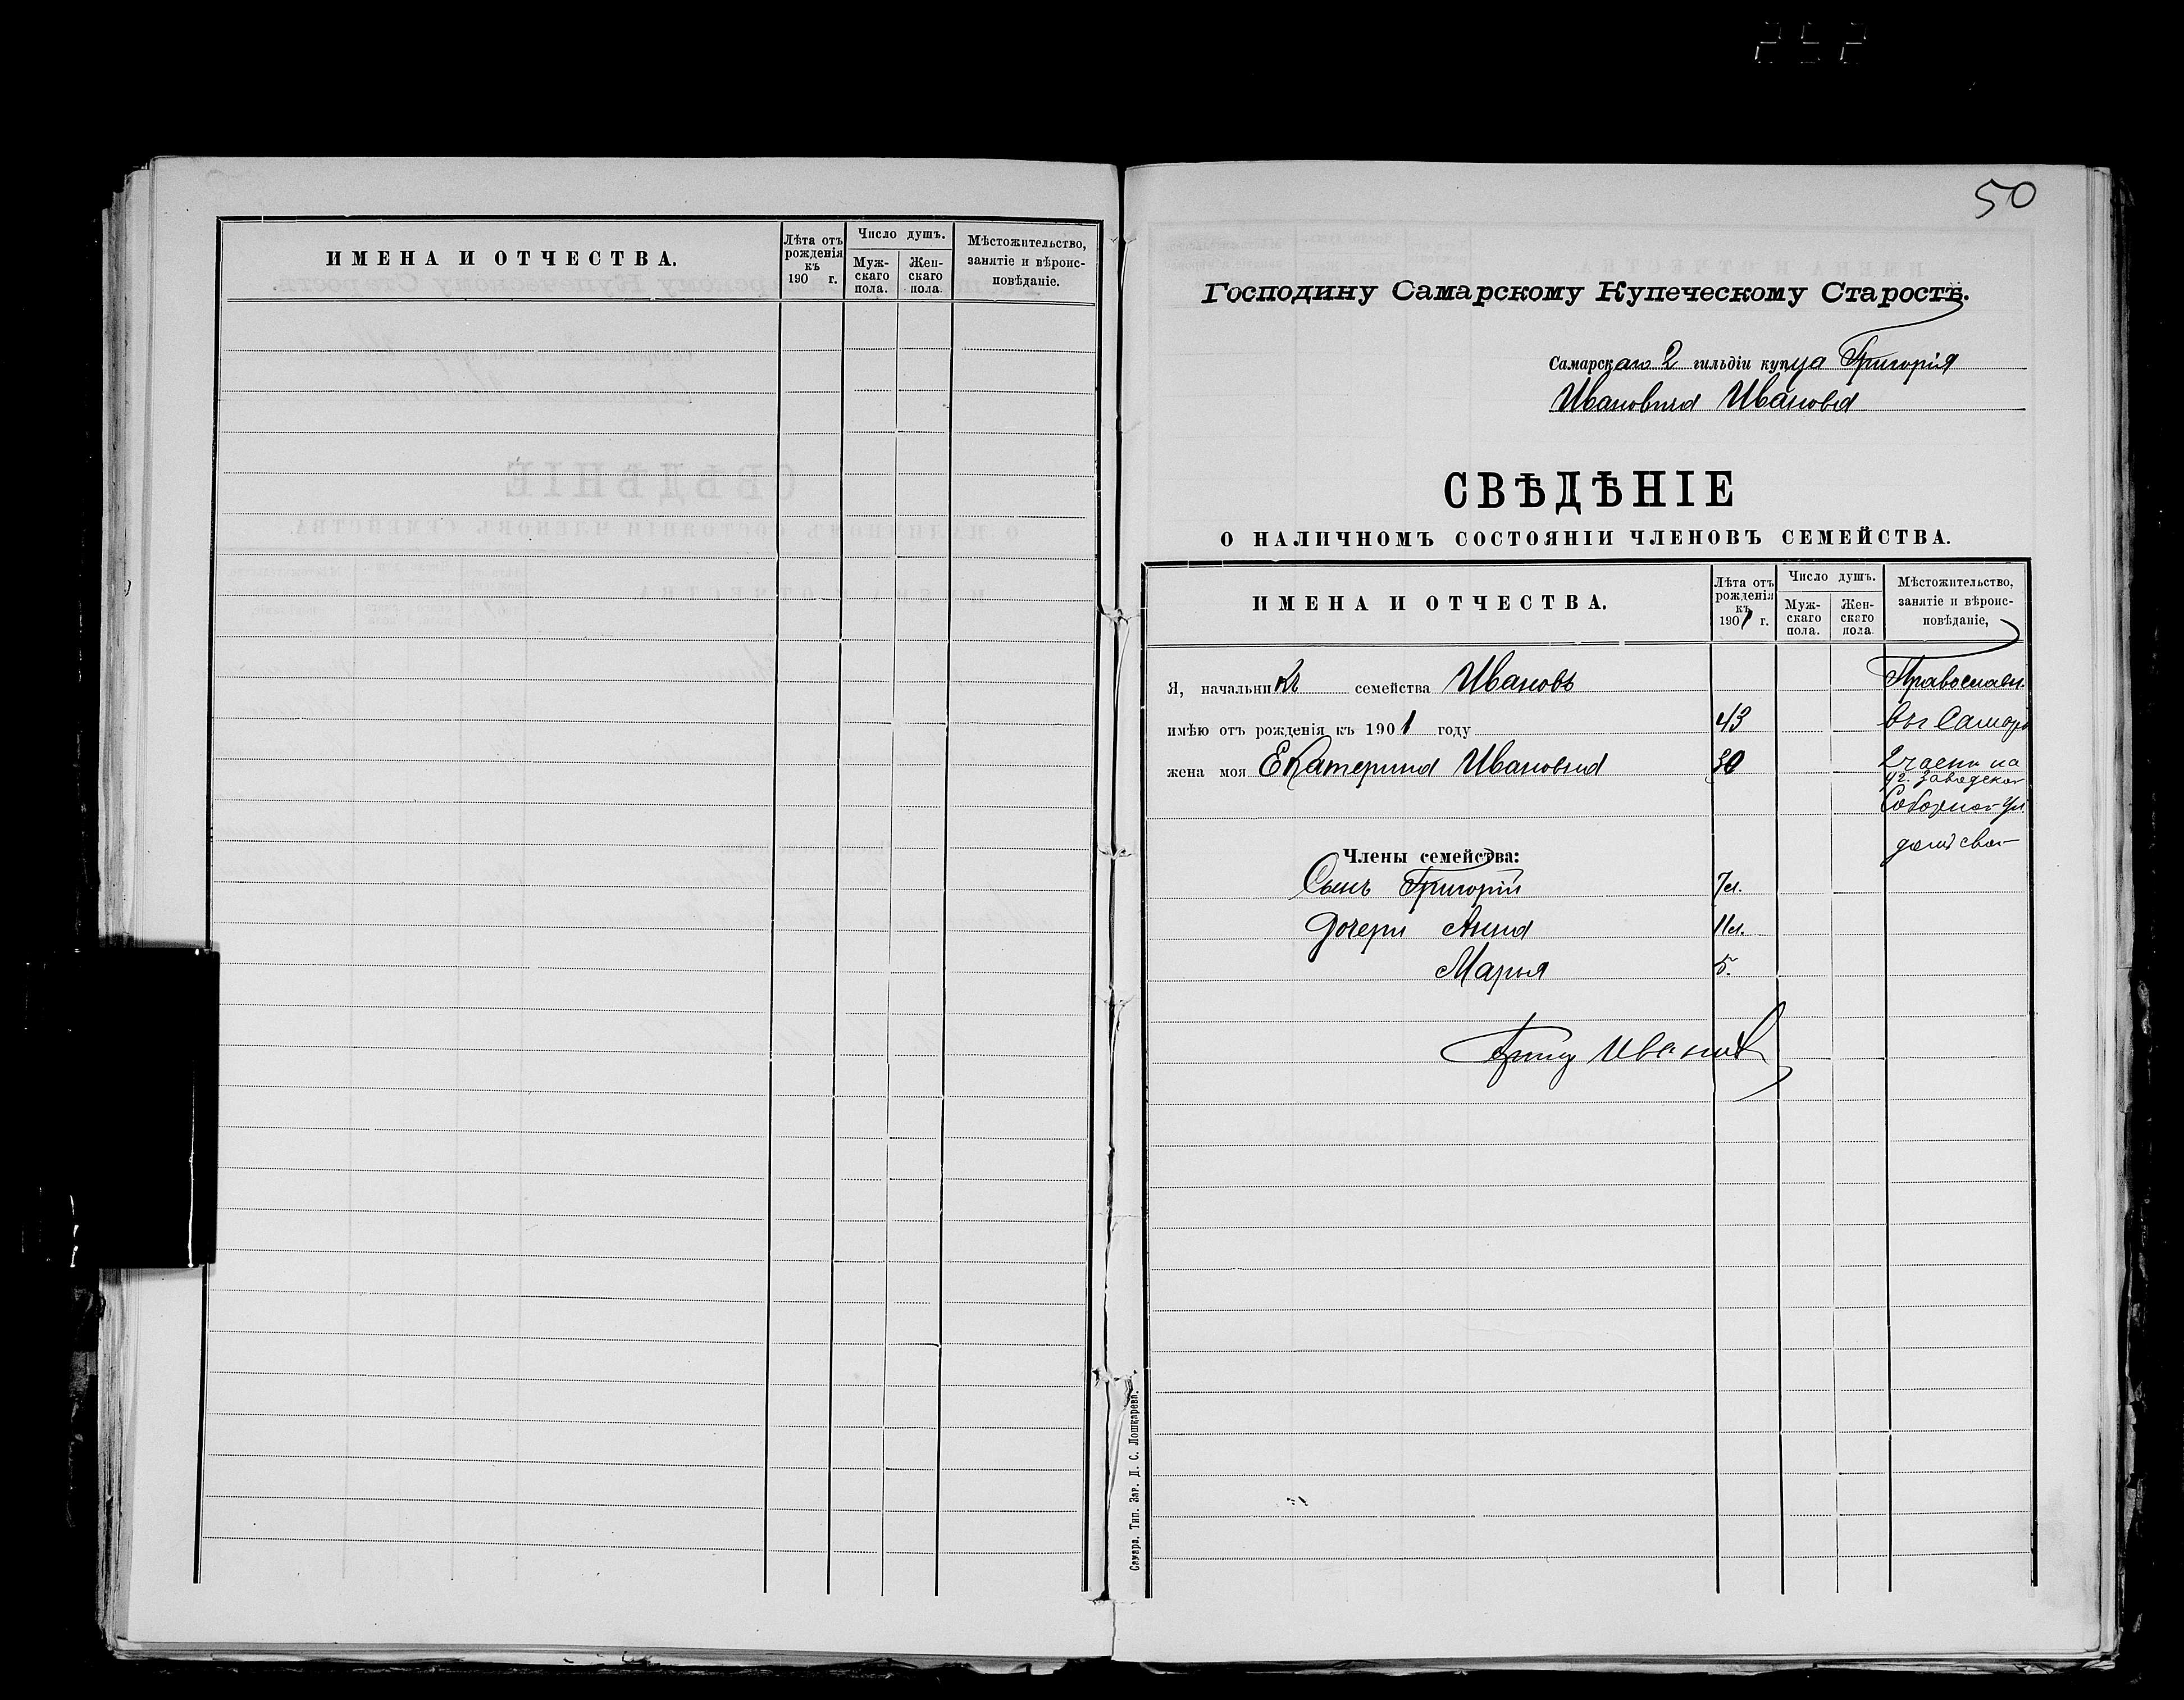 ИМЕНА И ОТЧЕСТВА.
Лѣта отъ рожденія къ 190 г.
Число душъ.
Мужскаго пола.
Женскаго пола.
Мѣстожительство, занятіе и вѣроисповѣданіе.
50
Господину Самарскому Купеческому Старостѣ.
Самарскаго 2 гильдіи купца Григорія
Ивановича Иванова
СВѢДѢНІЕ
О НАЛИЧНОМЪ СОСТОЯНІИ ЧЛЕНОВЪ СЕМЕЙСТВА.
ИМЕНА И ОТЧЕСТВА.
Лѣта отъ рожденія къ 1901 г.
Число душъ.
Мужскаго пола.
Женскаго пола.
Мѣстожительство, занятіе и вѣроисповѣданіе,
Я, начальникъ семейства Ивановъ Православн.
имѣю отъ рожденія къ 1901 году 43 въ г Самарѣ
жена моя Екатерина Ивановна 30 2 части на
уг. Заводской
Соборной ул
домъ свой
Члены семейства:
Сынъ Григорій 7 л.
Дочери Анна 11 л.
Марья 5.
Григ Ивановъ
Самара. Тип. Заг. Д. С. Лошкарева.